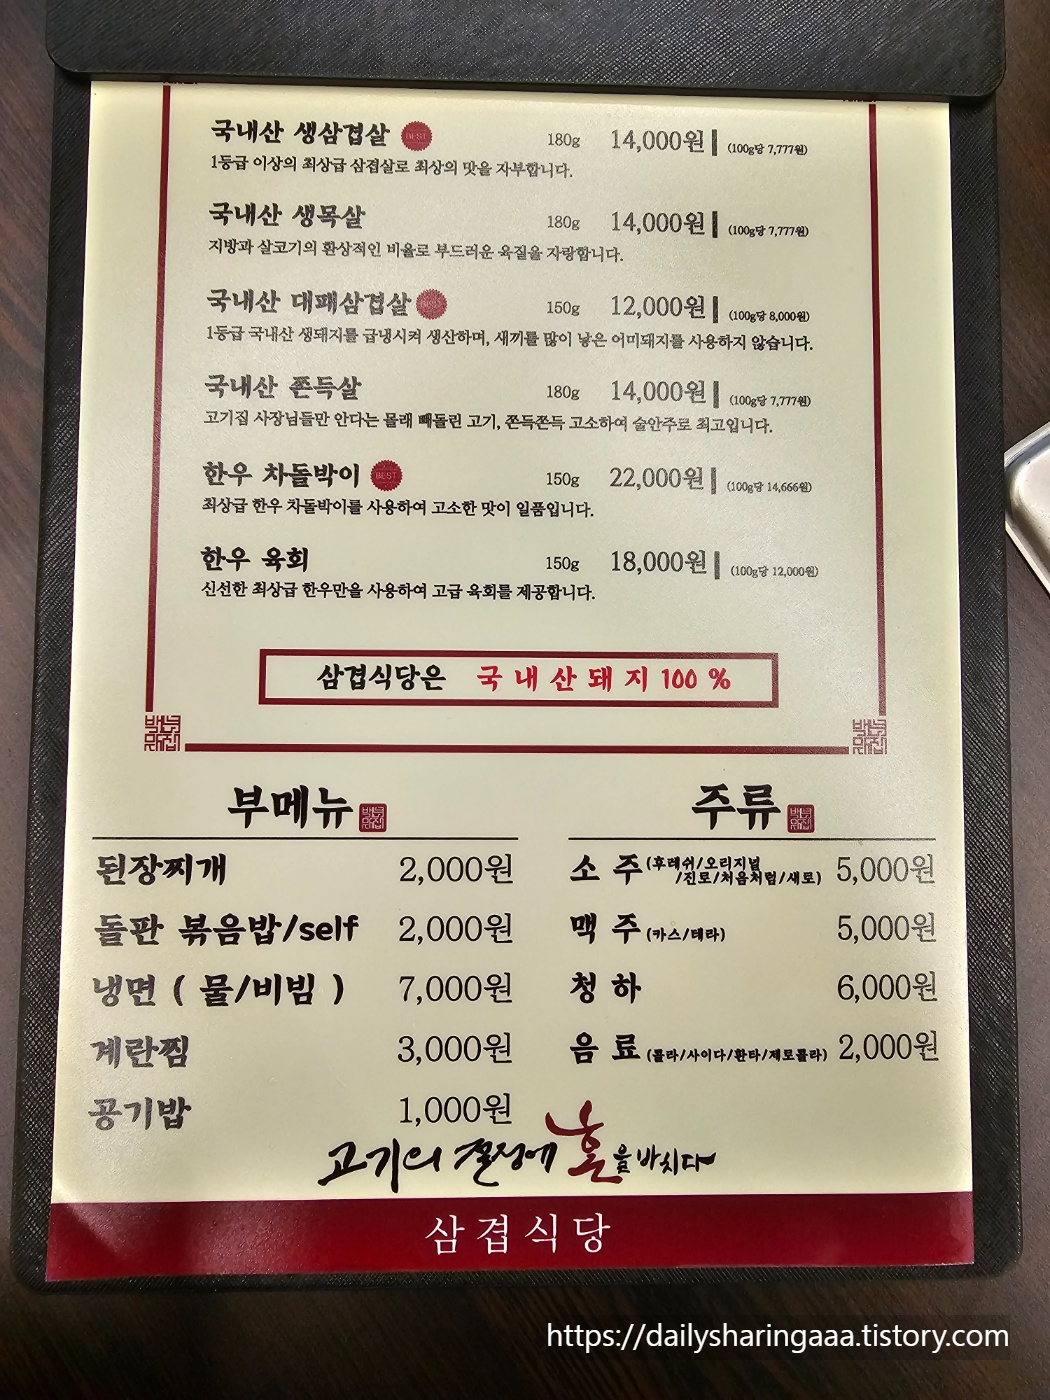 국내산 생삼겹살 BEST 180g 14,000원 (100g당 7,777원)
1등급 이상의 최상급 삼겹살로 최상의 맛을 자부합니다.
국내산 생목살 180g 14,000원 (100g당 7,777원)
지방과 살코기의 환상적인 비율로 부드러운 육질을 자랑합니다.
국내산 대패삼겹살 150g 12,000원 (100g당 8,000원)
1등급 국내산 생돼지를 급냉시켜 생산하며, 새끼를 많이 낳은 어미돼지를 사용하지 않습니다.
국내산 쫀득살 180g 14,000원 (100g당 7,777원)
고기집 사장님들만 안다는 몰래 빼돌린 고기, 쫀득쫀득 고소하여 술안주로 최고입니다.
한우 차돌박이 BEST 150g 22,000원 (100g당 14,666원)
최상급 한우 차돌박이를 사용하여 고소한 맛이 일품입니다.
한우 육회 150g 18,000원 (100g당 12,000원)
신선한 최상급 한우만을 사용하여 고급 육회를 제공합니다.
삼겹식당은 국내산돼지 100 %
부메뉴
된장찌개 2,000원
돌판 볶음밥/self 2,000원
냉면 ( 물/비빔 ) 7,000원
계란찜 3,000원
공기밥 1,000원
주류
소 주 (후레쉬/오리지널 5,000원
/진로/처음처럼/새로)
맥 주 (카스/테라) 5,000원
청 하 6,000원
음 료 (콜라/사이다/환타/제로콜라) 2,000원
고기의 열정에 혼을 바치다
삼겹식당
https://dailysharingaaa.tistory.com